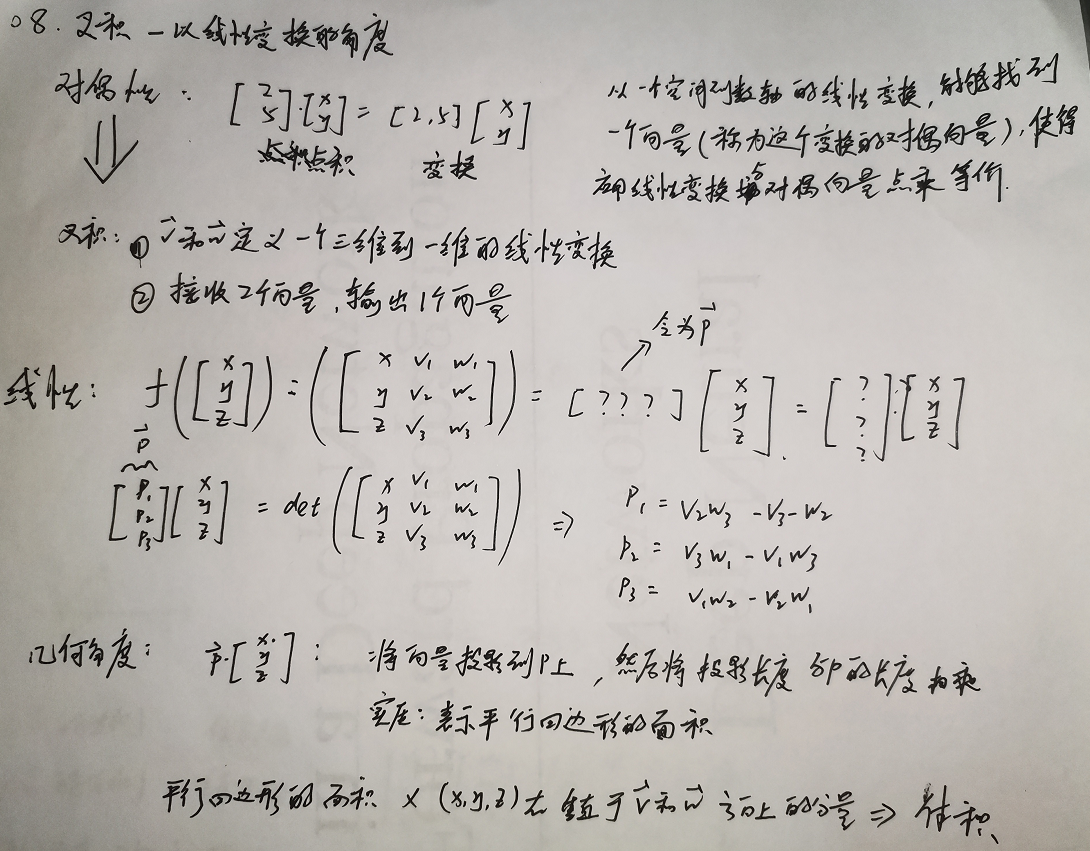 08. 叉积 — 以线性变换的角度
对偶性: [2 5]·[x y] = [2,5] [x y]
点积 变换
以一个空间到数轴的线性变换, 都能找到
一个向量(称为这个变换的对偶向量), 使得
应用线性变换与对偶向量点乘等价.
叉积: ① v⃗和w⃗定义一个三维到一维的线性变换
② 接收2个向量, 输出1个向量
令为p⃗
线性: f([x y z]) = ([x v₁ w₁ y v₂ w₂ z v₃ w₃]) = [? ? ?] [x y z] = [? ? ?]·[x y z]
p⃗
[p₁ p₂ p₃][x y z] = det([x v₁ w₁ y v₂ w₂ z v₃ w₃]) ⇒
P₁ = v₂w₃ - v₃-w₂
P₂ = v₃w₁ - v₁w₃
P₃ = v₁w₂ - v₂w₁
几何角度: p⃗·[x y z]: 将向量投影到P上, 然后将投影长度与P的长度相乘
实际: 表示平行四边形的面积
平行四边形的面积 × (x,y,z)在垂直于v⃗和w⃗方向上的分量 ⇒ 体积